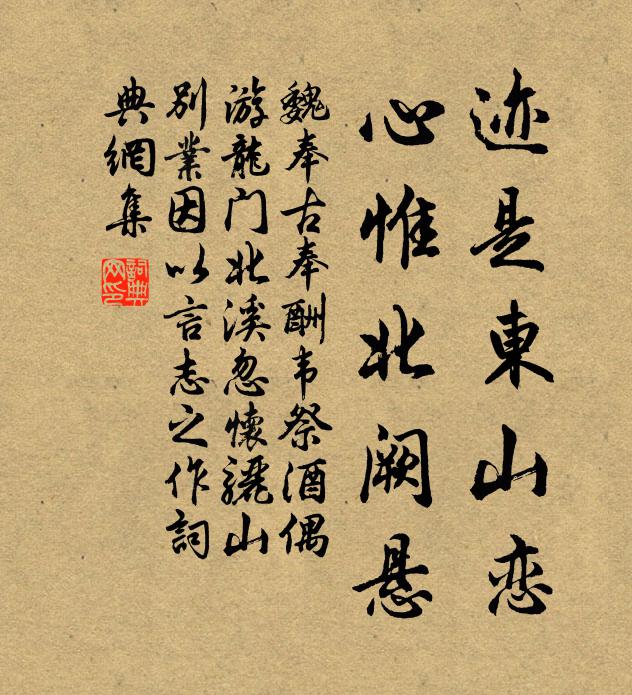 迹是東山恋
心惟北阙悬
魏奉古奉酬韦祭酒偶
游龍门北溪忽懷驪山
别業因以言志之作詞
典網集
詞典
网印